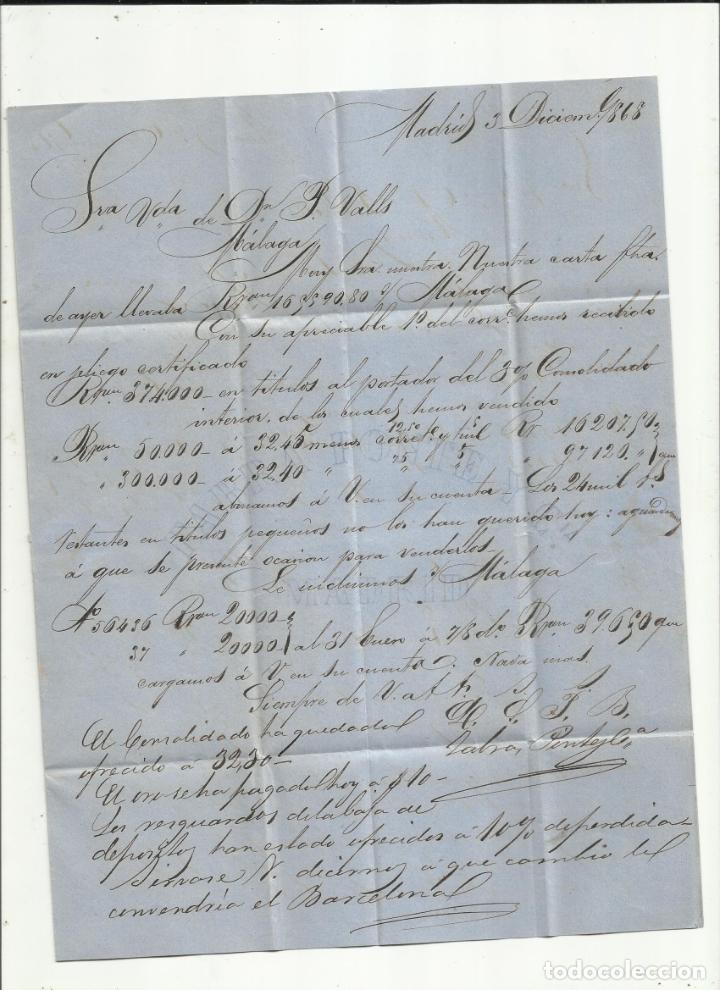 Madrid 3 Diciem. 1868
Sra Vda de Dn P Valls
Málaga
Muy Sra nuestra: Nuestra carta fha.
de ayer llevaba Rvon 16 20,80 s/ Málaga
Con su apreciable 1º del corre. hemos recibido
en pliego certificado
Rvon. 374.000 - en titulos al portador del 3% Consolidado
interior, de los cuales hemos vendido
Rvon 50.000 - á 32,45 menos 12,50 corre. y 5 mil Rv 16207,50
" 300.000 - á 32,40 " 75 " 5 " " 97120, " que
abonamos á V. en su cuenta - Los 24 mil rs
restantes en titulos pequeños no los han querido hoy: aguardamos
á que se presente ocasion para venderlos.
Le incluimos s/ Málaga
Nº 56436 Rvon 20000
37 " 20000 al 31 Enero á 7/8 do. Rvon. 39650 que
cargamos á V. en su cuenta. Nada mas.
Siempre de V. at. s. s.
Q. S. P. B.
El Consolidado ha quedado
ofrecido á 32,30 -
El oro se ha pagado hoy á $ 10 -
Los resguardos de la Caja de
depositos han estado ofrecidos á 10% de perdida -
Sirvase V. decirnos á que cambio le
convendria el Barcelona
todocoleccion